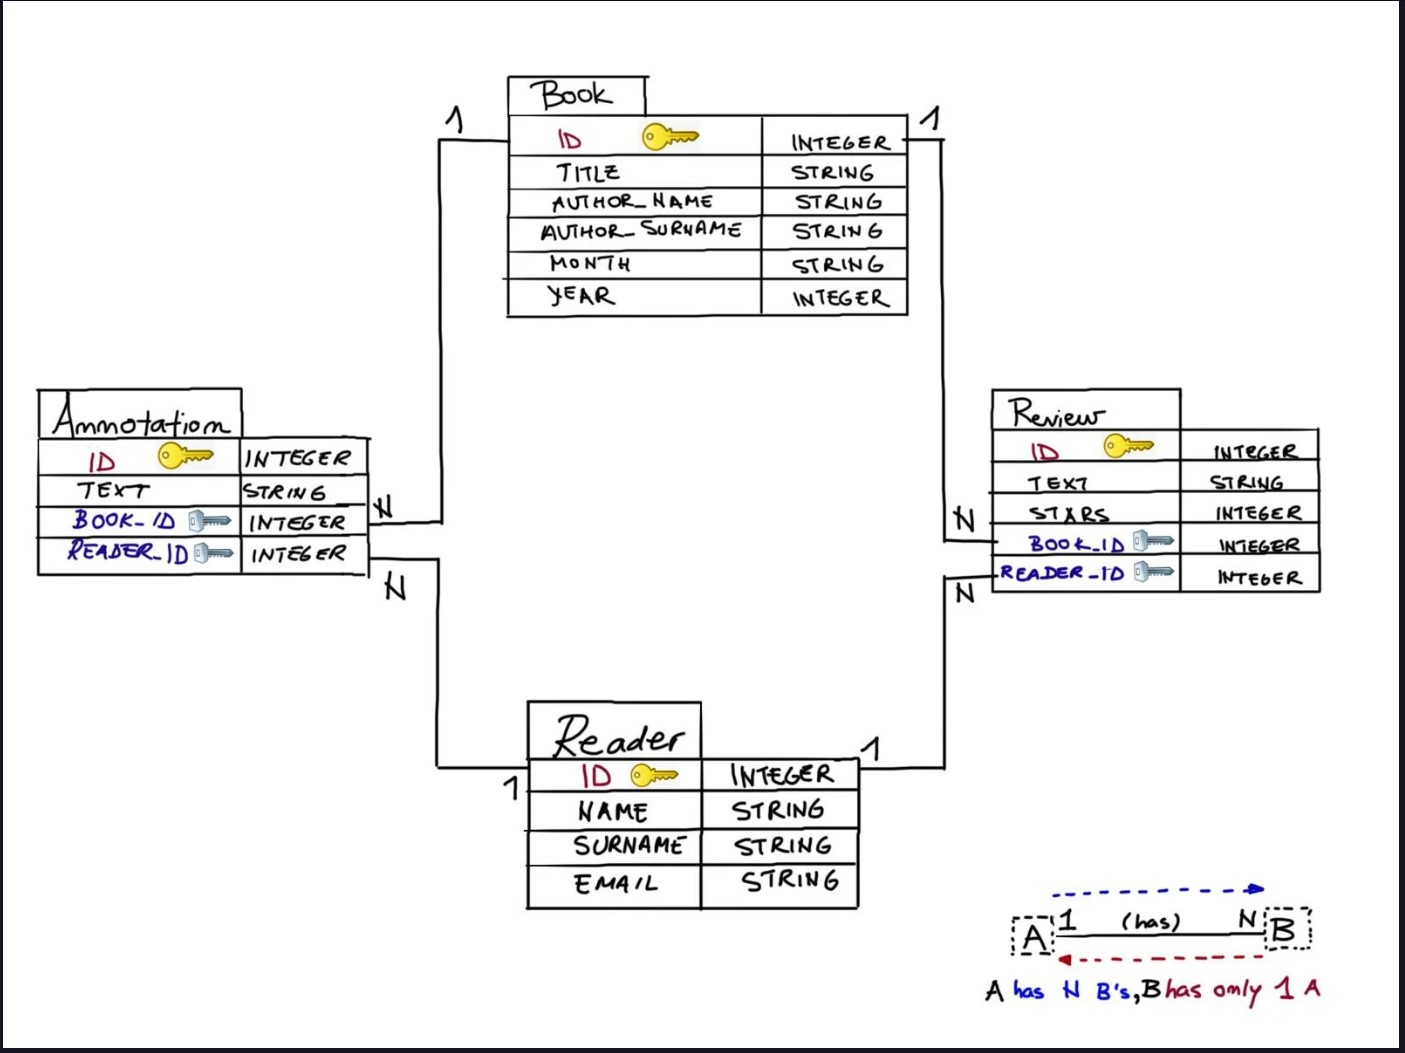 Book
1
1
ID INTEGER
TITLE STRING
AUTHOR_NAME STRING
AUTHOR_SURNAME STRING
MONTH STRING
YEAR INTEGER
Annotation
ID INTEGER
TEXT STRING
BOOK_ID INTEGER
READER_ID INTEGER
N
N
Review
ID INTEGER
TEXT STRING
STARS INTEGER
BOOK_ID INTEGER
READER_ID INTEGER
N
N
Reader
1
1
ID INTEGER
NAME STRING
SURNAME STRING
EMAIL STRING
A 1 (has) N B
A has N B's, B has only 1 A